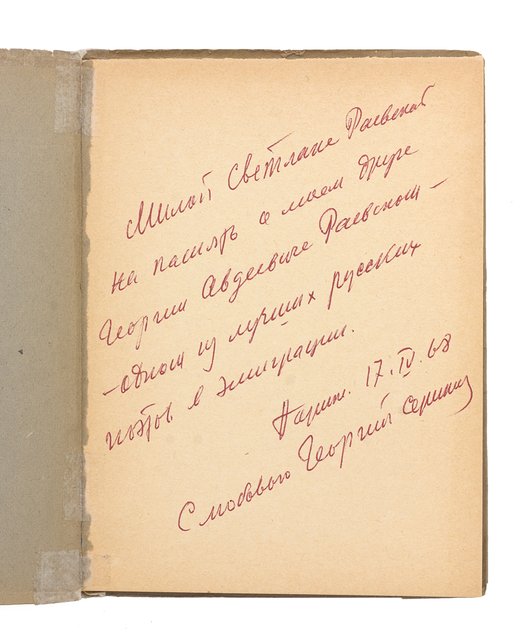 Милой Светлане Раевской
на память о моем друге
Георгии Авдеевиче Раевском —
— одном из лучших русских
поэтов в эмиграции.
Париж. 17.IV.68
С любовью Георгий